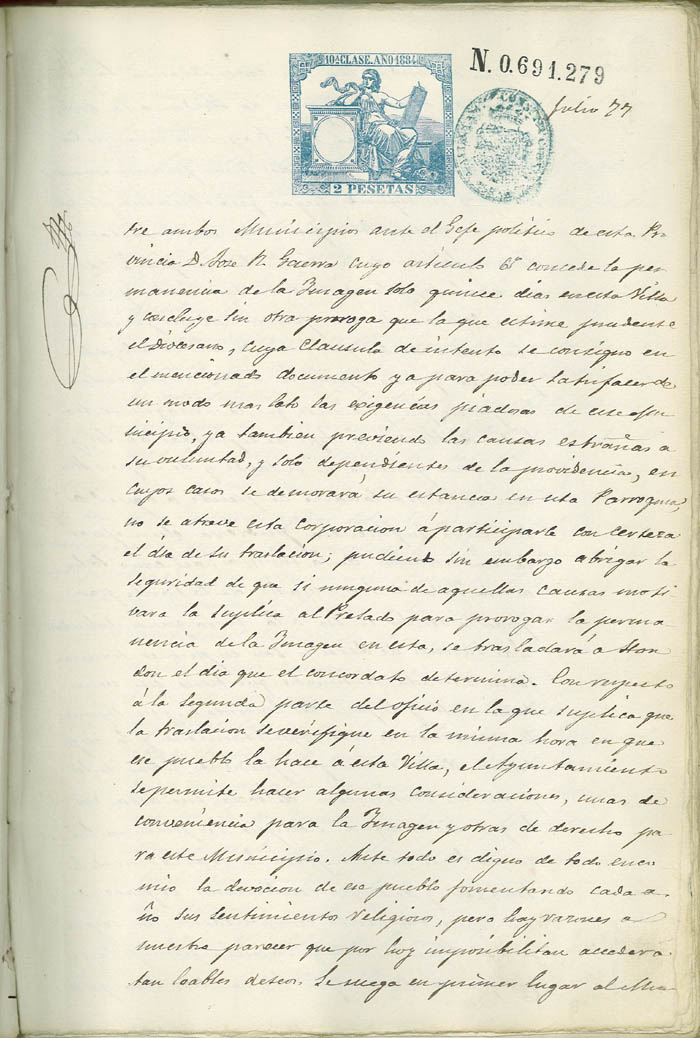 10ª CLASE. AÑO 1884
2 PESETAS
N. 0.691.279
CONSTITUCION
Julio 77
tre ambos Municipios ante el Gefe politico de esta Pro-
vincia D. Jose R. Guerra cuyo articulo 6º concede la per-
manencia de la Imagen solo quince dias en esta Villa
y concluye sin otra proroga que la que estime prudente
el Diocesano, cuya clausula de intento se consigno en
el mencionado documento ya para poder satisfacer de
un modo mas lato las exigencias piadosas de este Mu-
nicipio, ya tambien previendo las causas estrañas a
su voluntad, y solo dependientes de la providencia, en
cuyos casos se demorará su estancia en esta Parroquia,
no se atreve esta Corporacion á participarle con certeza
el dia de su traslacion; pudiendo sin embargo abrigar la
seguridad de que si ninguna de aquellas causas moti
vara la suplica al Prelado para prorogar la perma
nencia de la Imagen en esta, se trasladará a Hon
don el dia que el concordato determina. Con respecto
á la segunda parte del oficio en la que suplica que
la traslacion se verifique en la misma hora en que
ese pueblo la hace á esta Villa, el Ayuntamiento
se permite hacer algunas consideraciones, unas de
conveniencia para la Imagen y otras de derecho pa
ra este Municipio. Ante todo es digno de todo enco
mio la devocion de ese pueblo fomentando cada a-
ño sus sentimientos religiosos, pero hay razones a
nuestro parecer que por hoy imposibilitan acceder a
tan loables deseos. Se niega en primer lugar al Mu-